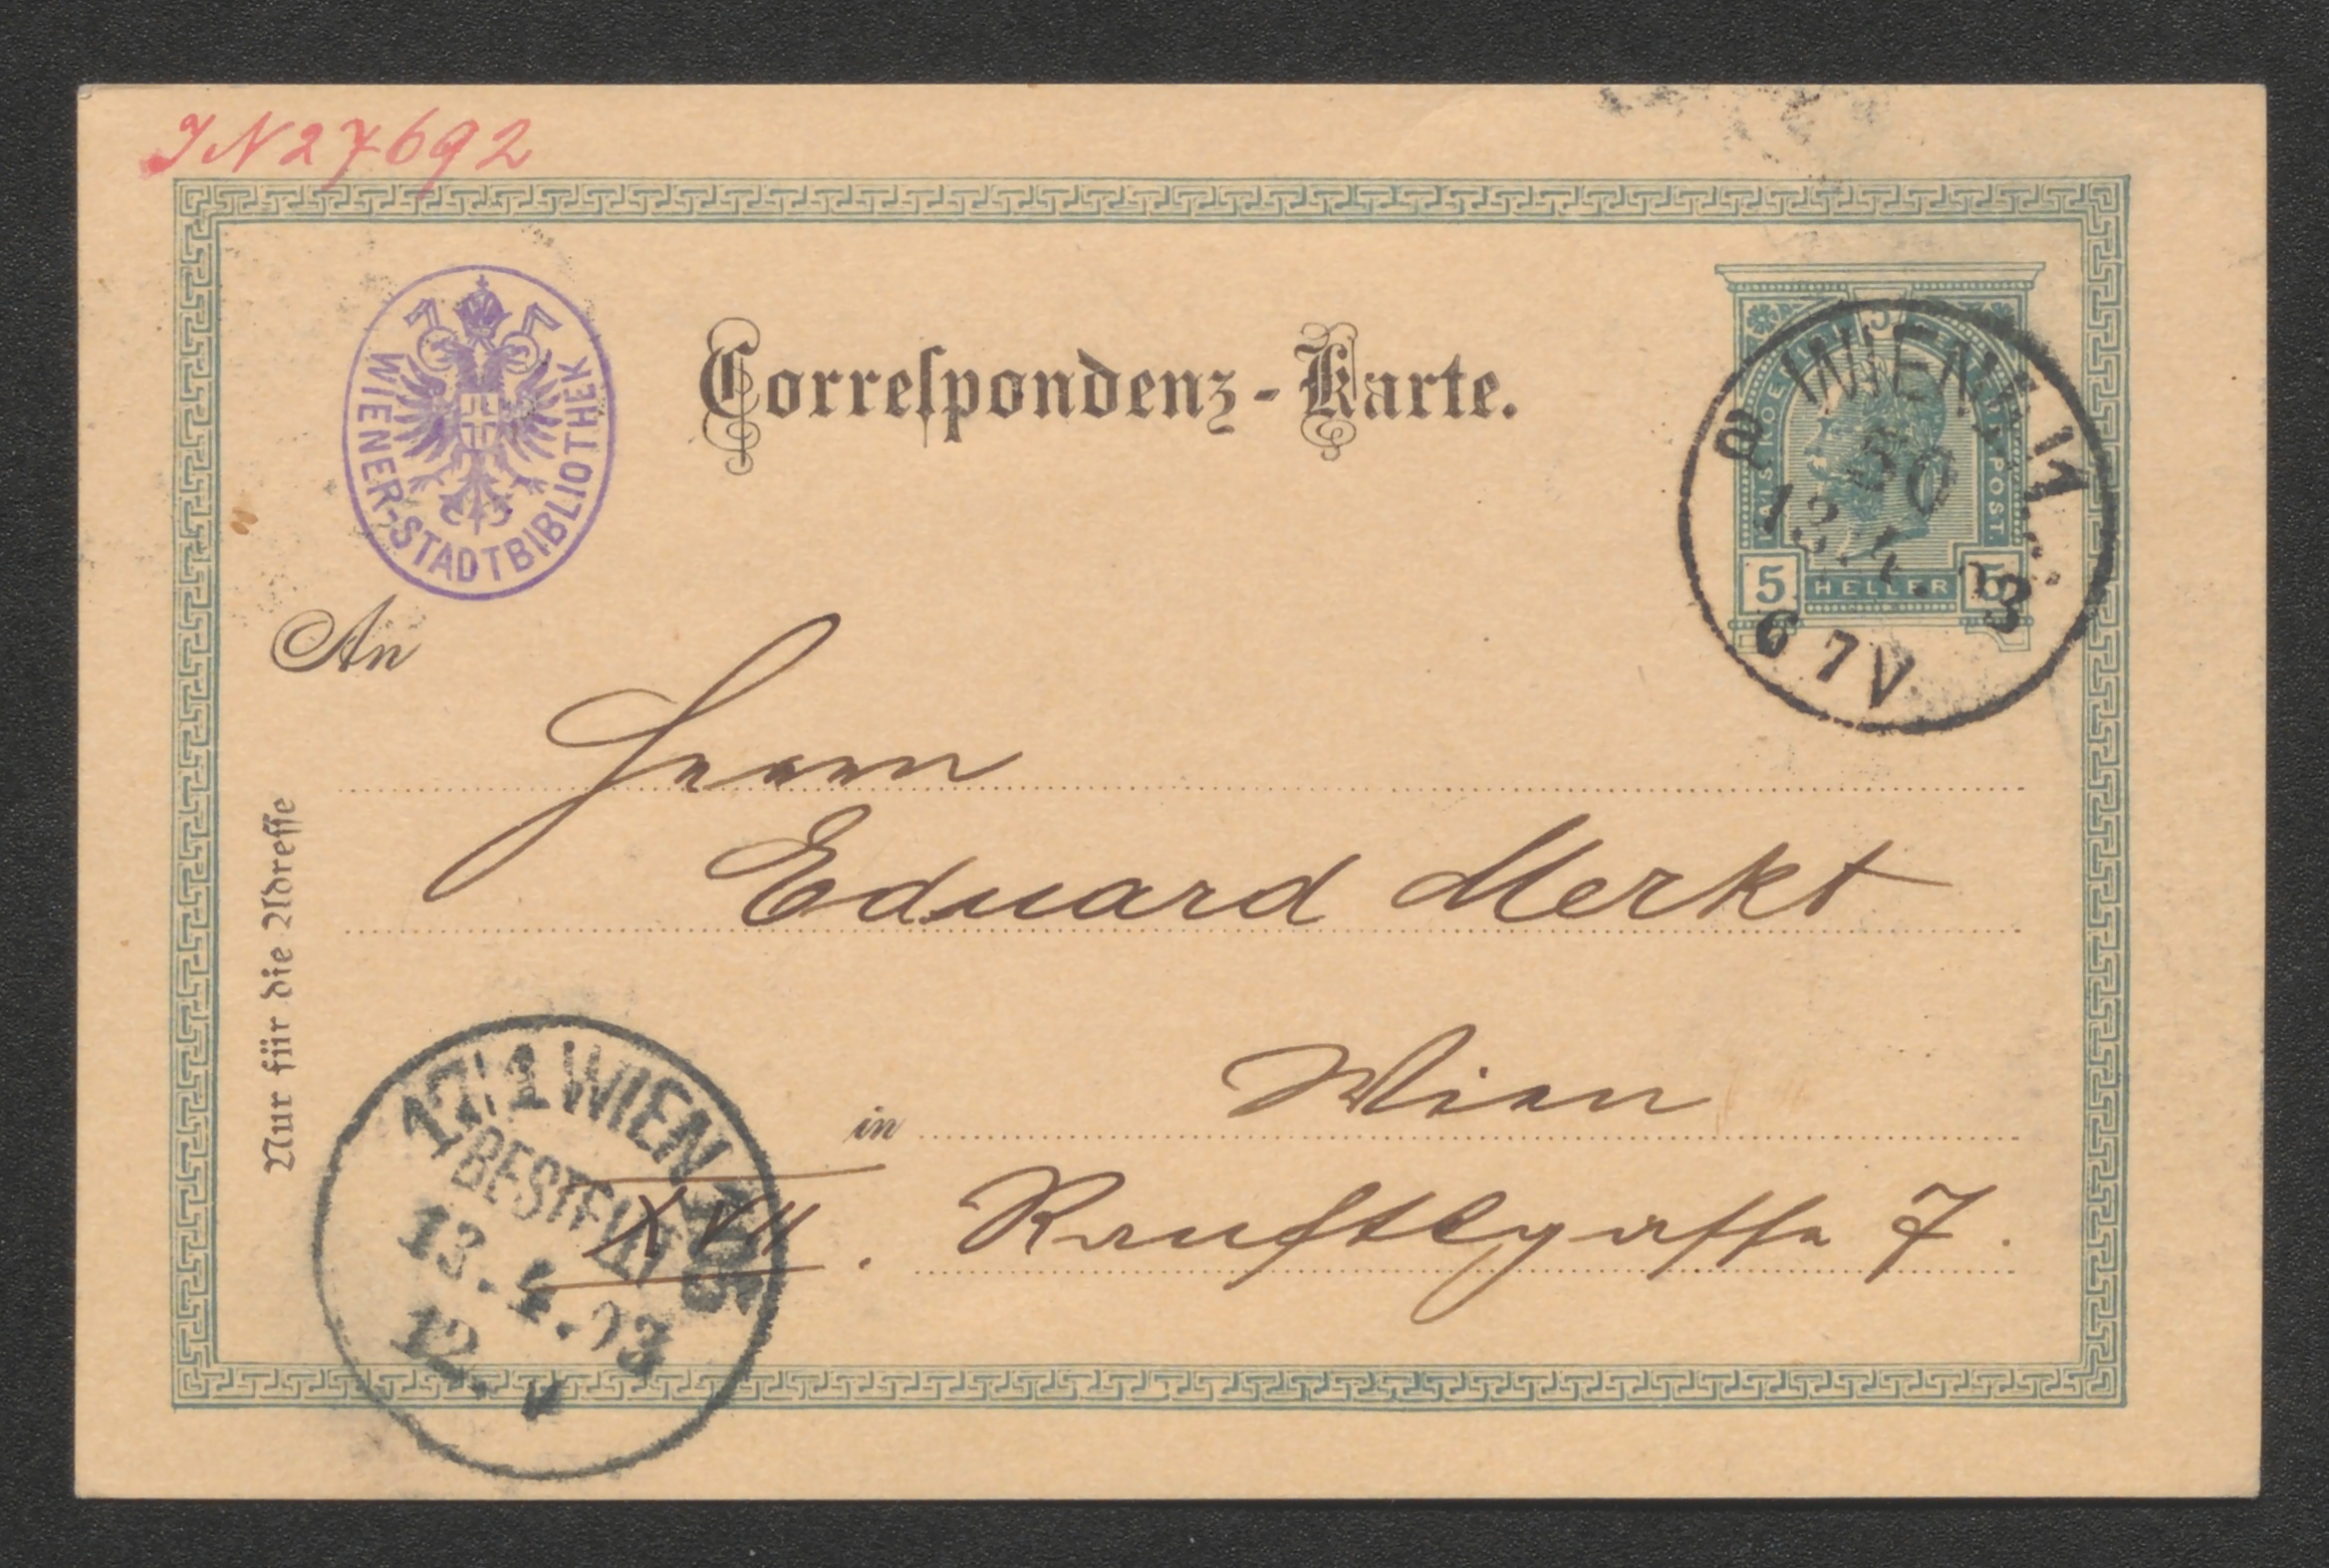 IN 27692
WIENER-STADTBIBLIOTHEK
Correſpondenz-Karte.
KAIS. KOE POST.
5
5 HELLER 5
2 WIEN 1/1
50
13 4 03
6 7V
An
Herrn
Eduard Merkt
in Wien
XVII. Ranftlgasse 7.
Nur für die Adreſſe
17/1 WIEN 105
BESTELLT
13.4.03
12. V